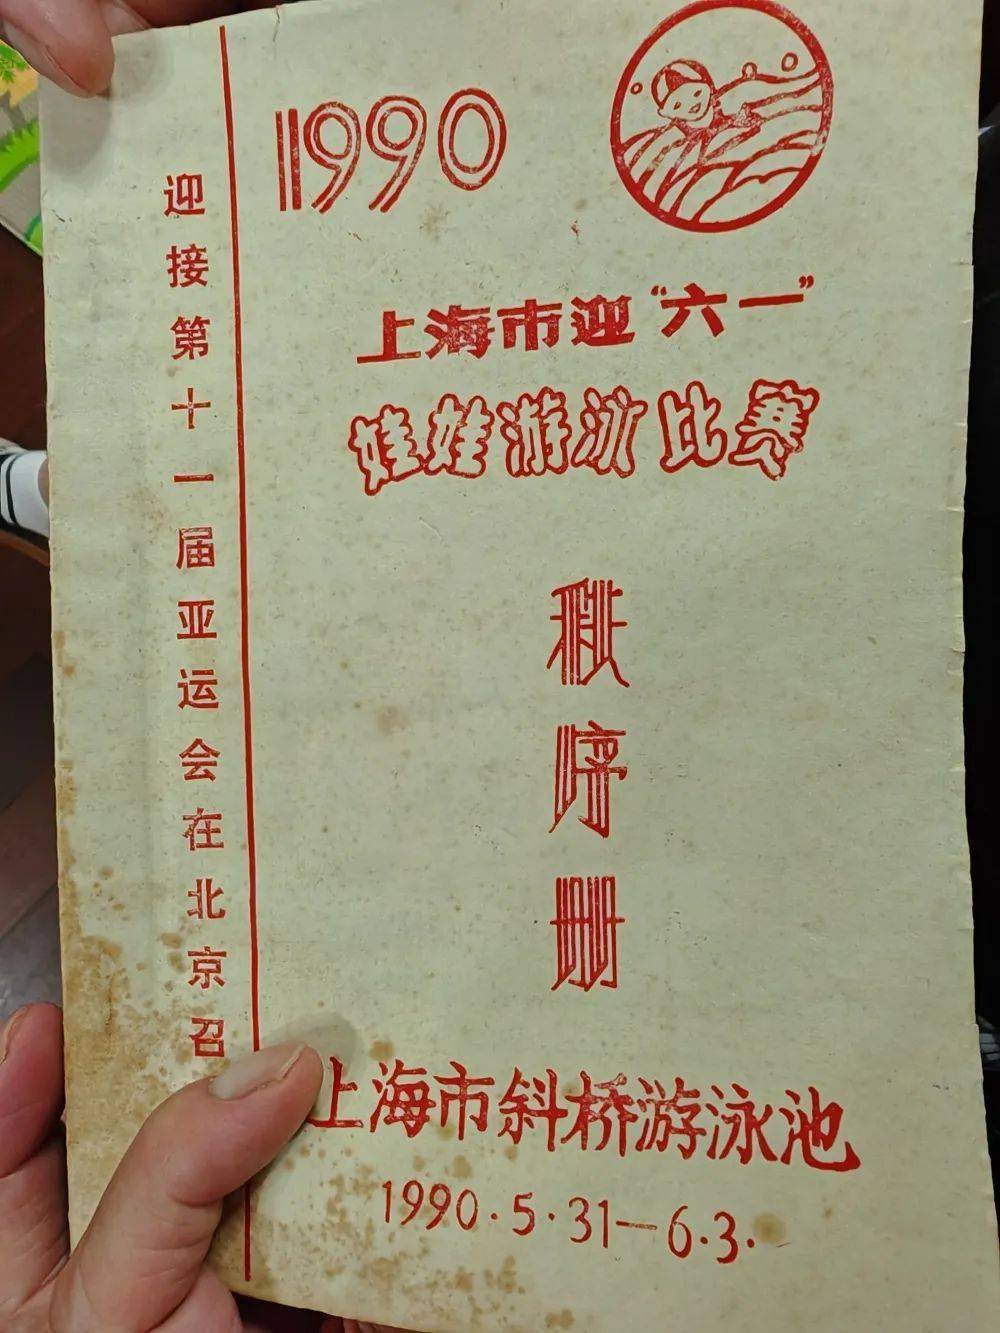 1990
上海市迎“六一”
娃娃游泳比赛
秩序册
上海市斜桥游泳池
1990·5·31—6·3·
迎接第十一届亚运会在北京召